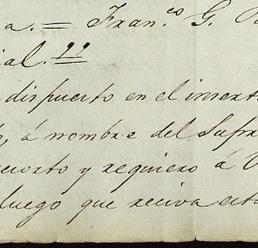 a. = Fran.co G.
ial. =
dispuesto en el insert
á nombre del Supr
exorto y requiero á V
luego que reciva est